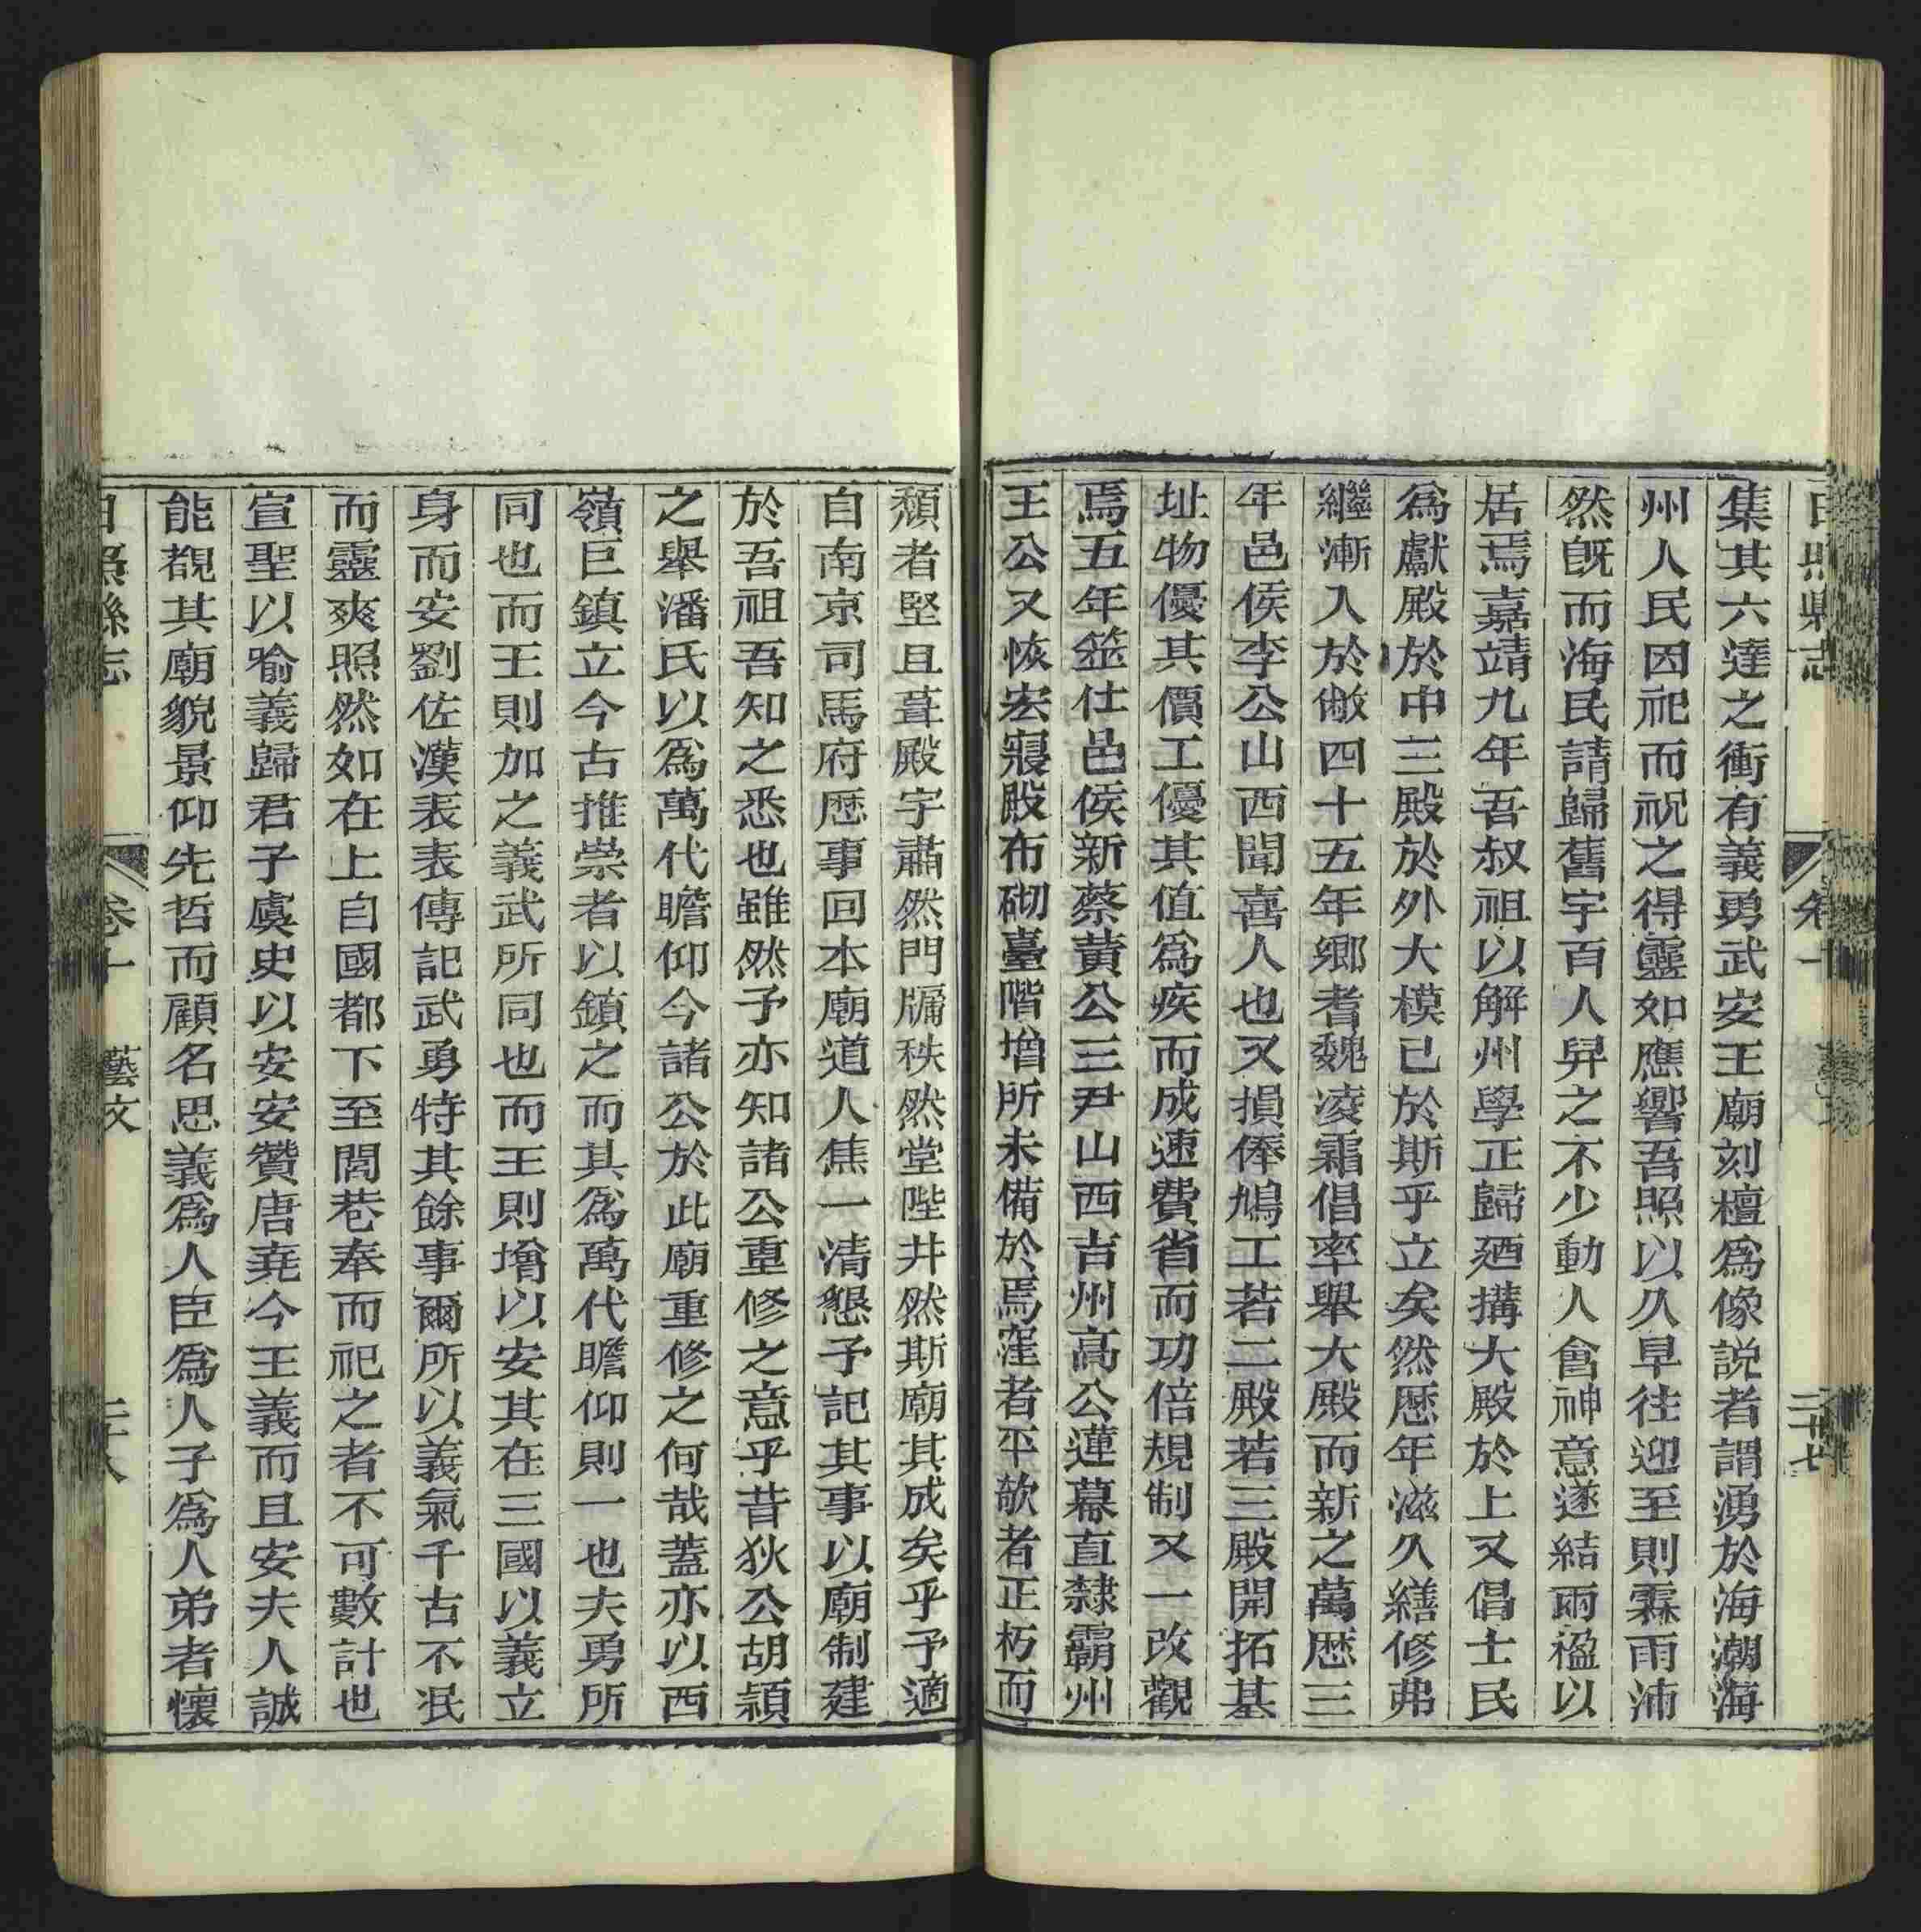 日照縣志
卷十
二十七
集其六達之衝有義勇武安王廟刻檀爲像説者謂湧於海潮海
州人民因祀而祝之得靈如應響吾照以久旱往迎至則霖雨沛
然旣而海民請歸舊宇百人舁之不少動人會神意遂結雨楹以
居焉嘉靖九年吾叔祖以解州學正歸廼搆大殿於上又倡士民
爲獻殿於中三殿於外大模已於斯乎立矣然歷年滋久繕修弗
繼漸入於敝四十五年鄉耆魏凌霜倡率舉大殿而新之萬歷三
年邑侯李公山西聞喜人也又損俸鳩工若二殿若三殿開拓基
址物優其價工優其值爲疾而成速費省而功倍規制又一改觀
焉五年筮仕邑侯新蔡黃公三尹山西吉州高公蓮幕直隸霸州
王公又恢宏寢殿布砌臺階增所未備於焉窪者平欹者正朽而
頹者堅且葺殿宇肅然門牖秩然堂陛井然斯廟其成矣乎予適
自南京司馬府歷事回本廟道人焦一清懇予記其事以廟制建
於吾祖吾知之悉也雖然予亦知諸公重修之意乎昔狄公胡頴
之舉潘氏以爲萬代瞻仰今諸公於此廟重修之何哉蓋亦以西
嶺巨鎮立今古推崇者以鎮之而其爲萬代瞻仰則一也夫勇所
同也而王則加之義武所同也而王則增以安其在三國以義立
身而安劉佐漢表表傳記武勇特其餘事爾所以義氣千古不泯
而靈爽照然如在上自國都下至閭巷奉而祀之者不可數計也
宣聖以喻義歸君子虞史以安安贊唐堯今王義而且安夫人誠
能覩其廟貌景仰先哲而顧名思義爲人臣爲人子爲人弟者懷
日照縣志
卷十
藝文
二十八